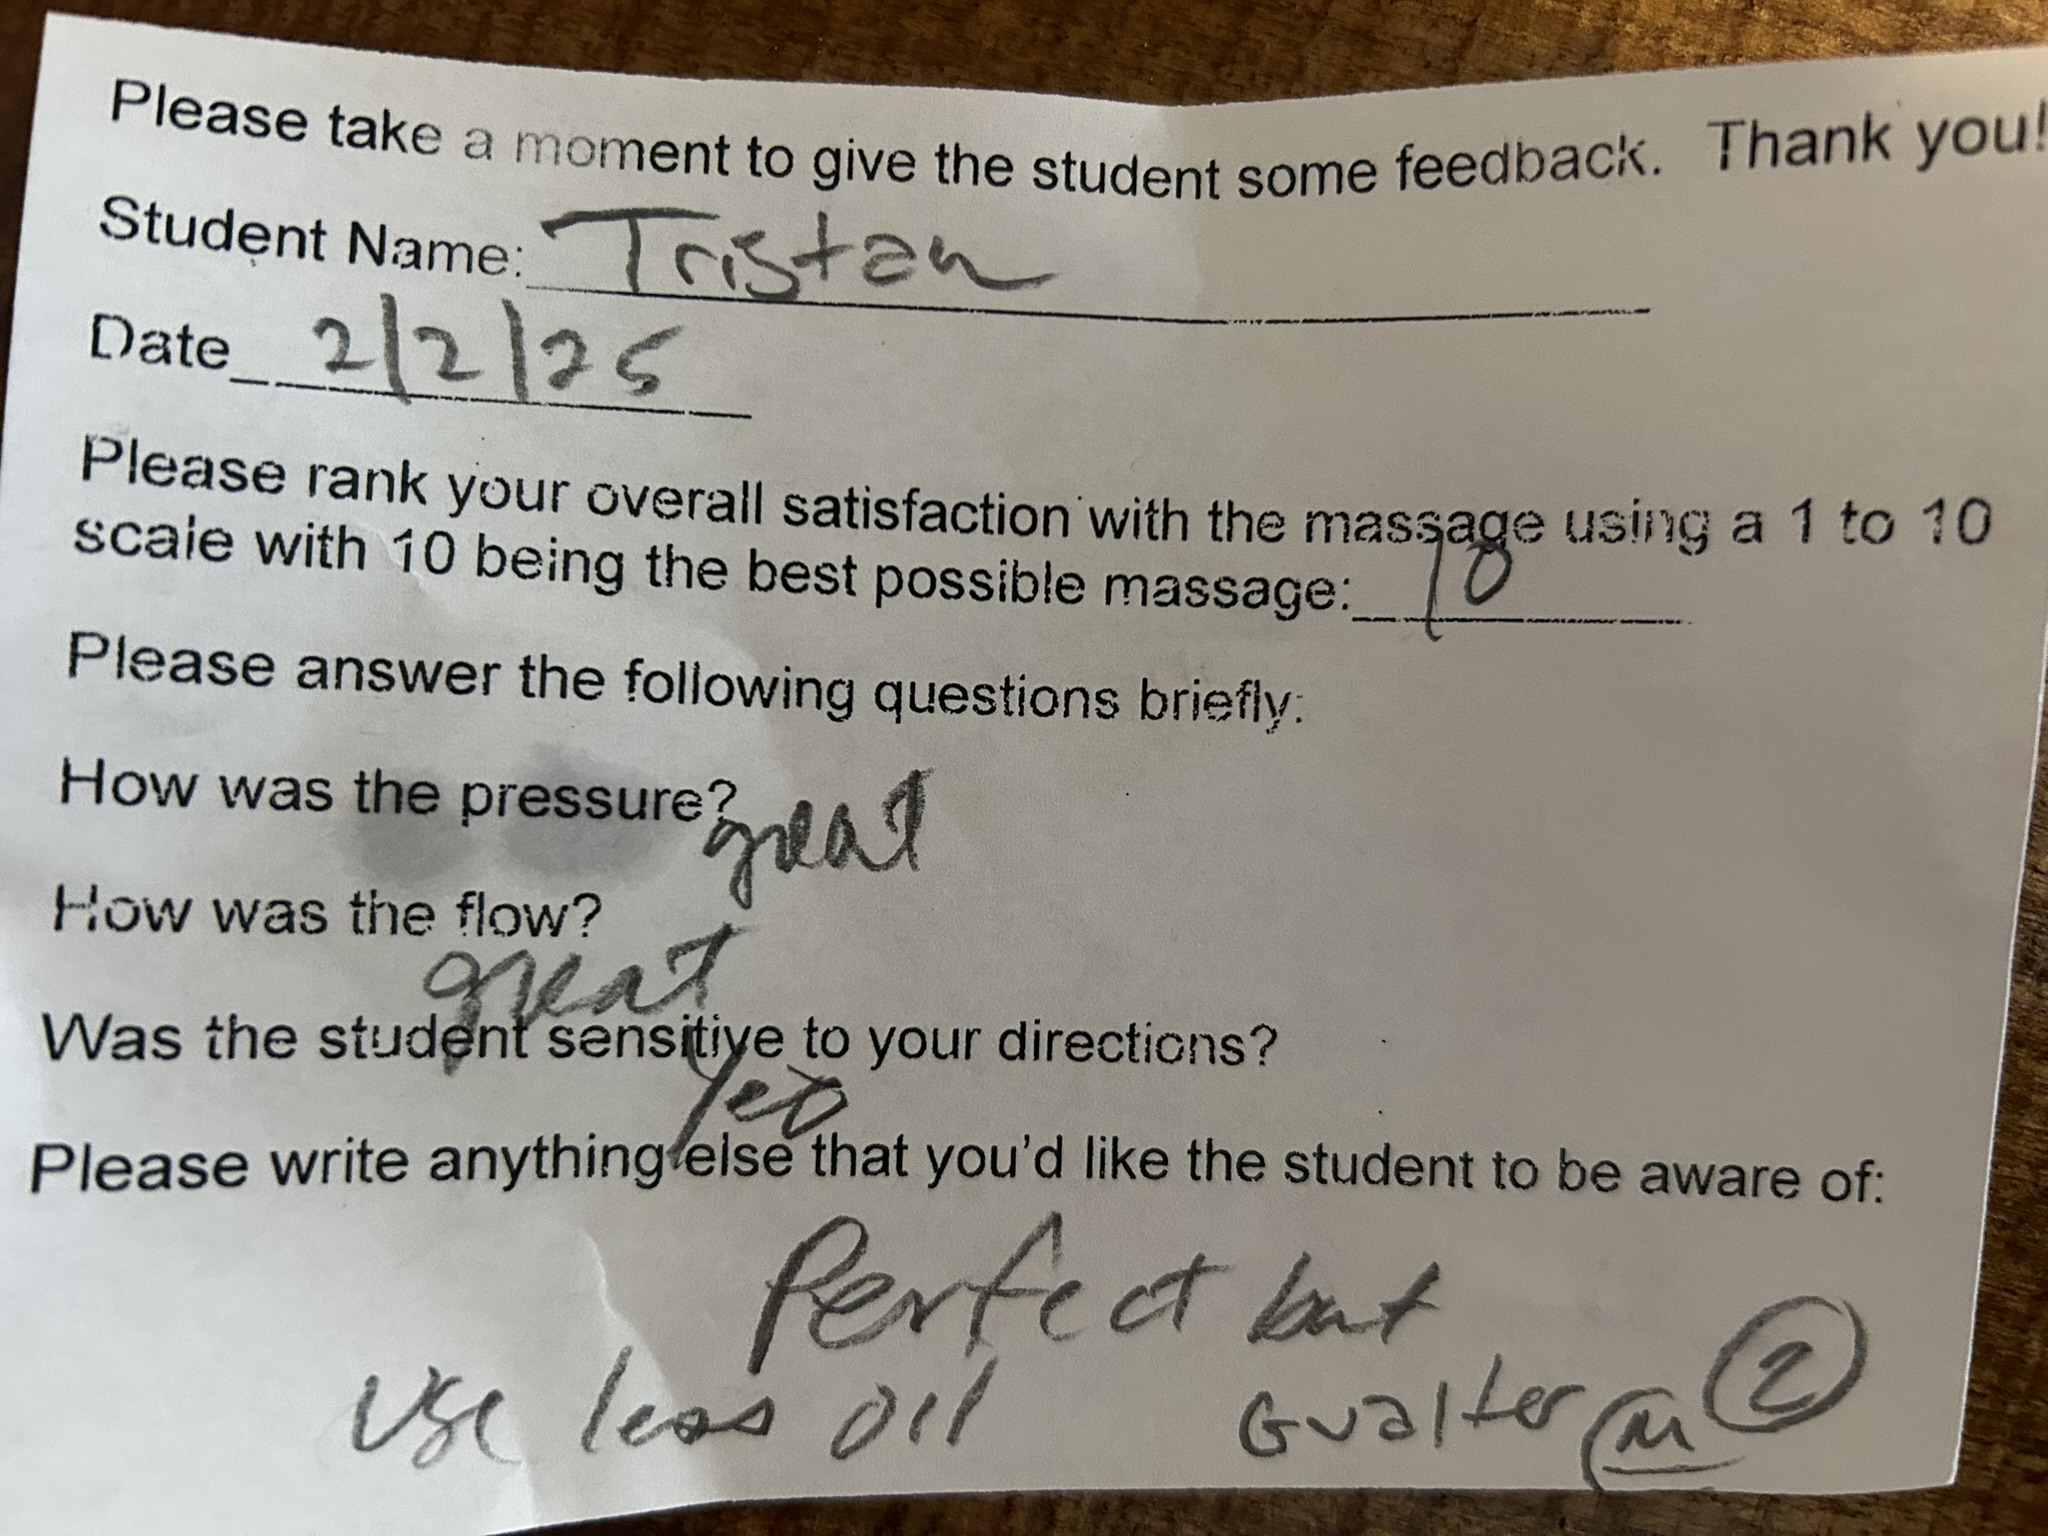 Please take a moment to give the student some feedback. Thank you!
Student Name: Tristan
Date 2/2/25
Please rank your overall satisfaction with the massage using a 1 to 10
scale with 10 being the best possible massage: 10
Please answer the following questions briefly:
How was the pressure? great
How was the flow?
great
Was the student sensitive to your directions?
Yes
Please write anything else that you'd like the student to be aware of:
Perfect but
use less oil
Gualter M 2